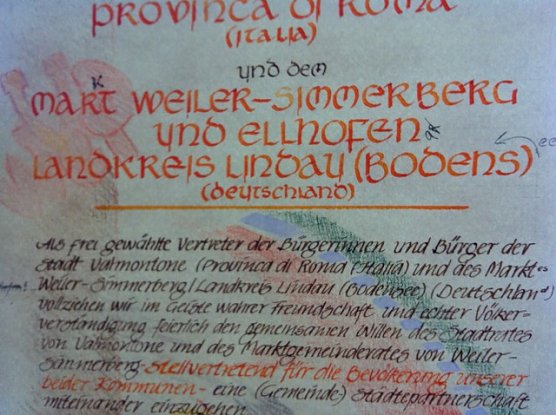 PROVINCA DI ROMA
(ITALIA)
UND DEM
MARKT WEILER-SIMMERBERG
UND ELLHOFEN
LANDKREIS LINDAU (BODENS)
(DEUTSCHLAND)
Als frei gewählte Vertreter der Bürgerinnen und Bürger der
Stadt Valmontone (Provinca di Roma/Italia) und des Markt-es
Weiler-Simmerberg/Landkreis Lindau (Bodensee) (Deutschland)
vollziehen wir im Geiste wahrer Freundschaft und echter Völker-
verständigung feierlich den gemeinsamen Willen des Stadtrates
von Valmontone und des Marktgemeinderates von Weiler-
Simmerberg stellvertretend für die Bevölkerung unserer
beider Kommunen - eine (Gemeinde) Städtepartnerschaft
miteinander einzugehen